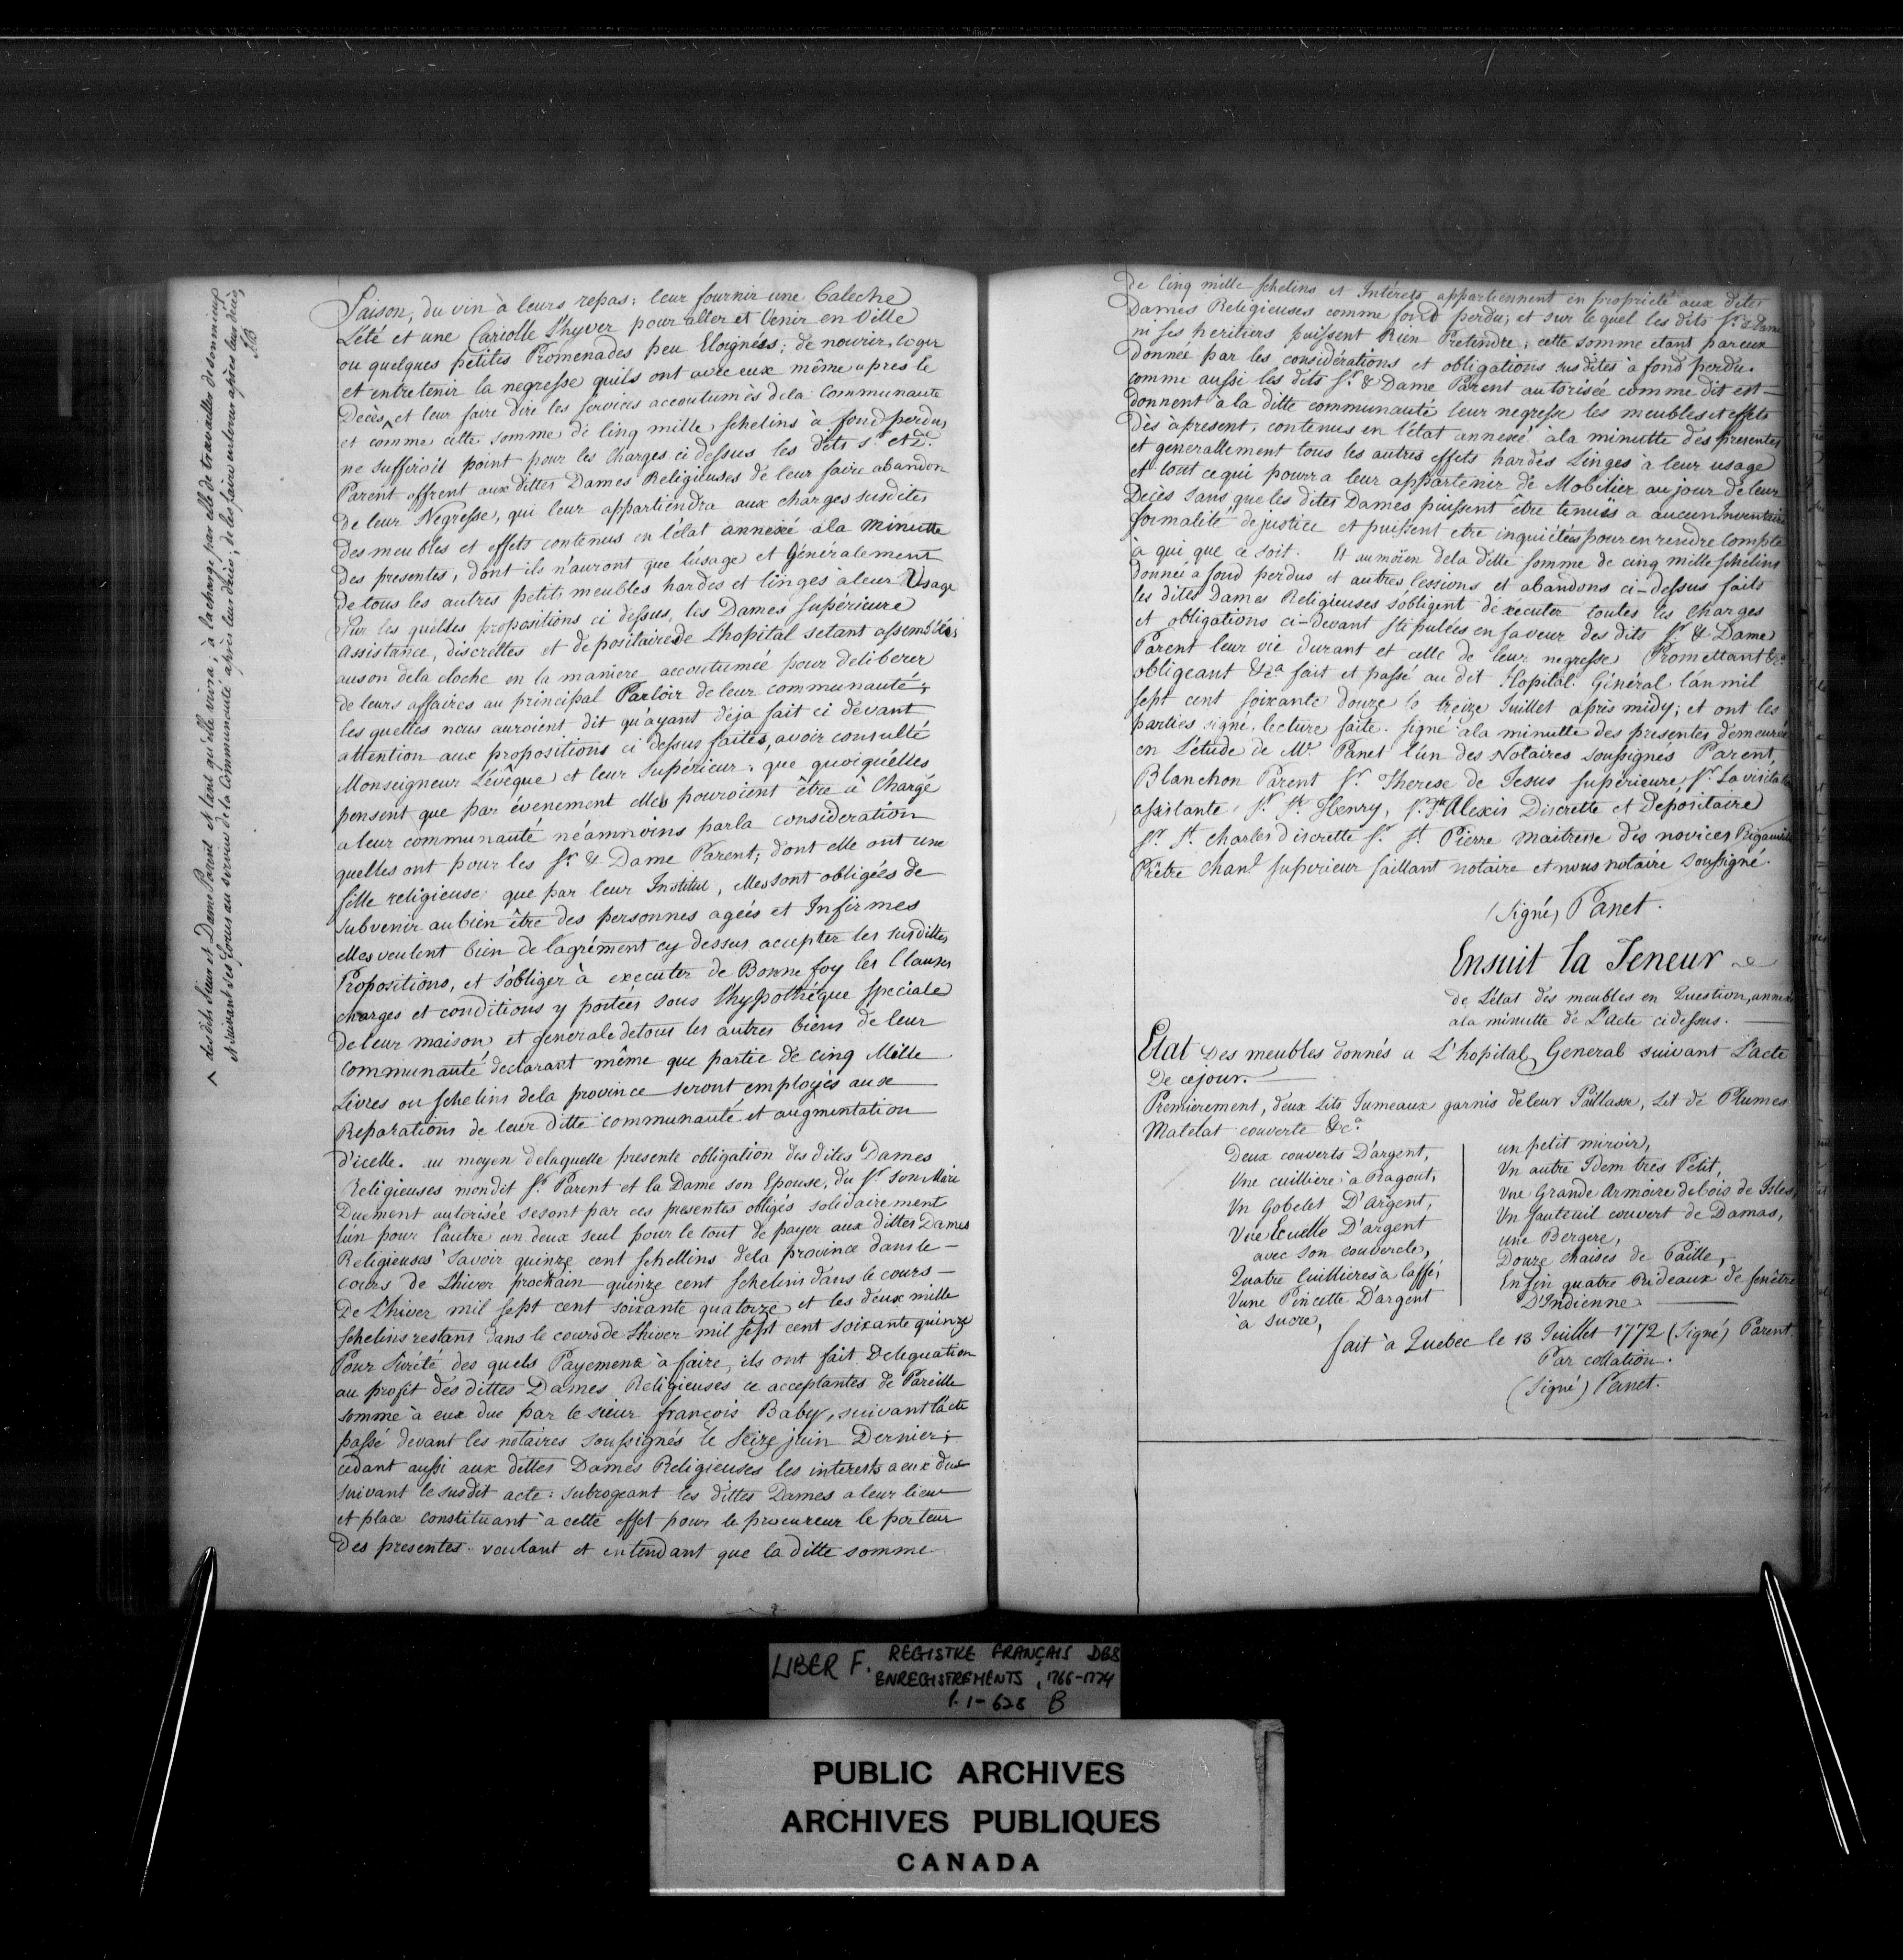 ^ des dits Sieur et Dame Parent et tant qu'elle vivra; à la charge par elle de travailler de son mieux
et suivant ses forces au service de la Communauté après leur décès; de les faire enterrer après leur décès,
Saison, du vin à leurs repas; leur fournir une Caleche
L'été et une Cariolle L'hyver pour aller et Venir en Ville
ou quelques petites Promenades peu Eloignées; de nourir, loger
et entretenir la negresse quils ont avec eux même apres le
Decès ^ et leur faire dire les services accoutumès dela Communaute
et comme cette somme de Cinq mille schelins à fond perdus
ne suffiroit point pour les Charges ci dessus les dits Sr. et De.
Parent offrent aux dittes Dames Religieuses de leur faire abandon
de leur Negresse, qui leur appartiendra aux charges susdites
des meubles et effets contenus en l'état annexé ala minutte
des presentes, dont ils n'auront que l'usage et Généralement
de tous les autres petits meubles hardes et linges à leur Usage
Sur les quelles propositions ci dessus, les Dames Supérieure
Assistance, discrettes et depositaires de L'hopital setant assemblées
auson dela cloche en la maniere accoutumée pour deliberer
de leurs affaires au principal Parloir de leur communauté;
les quelles nous auroient dit qu'ayant déja fait ci devant
attention aux propositions ci dessus faites, avoir consulté
Monseigneur L'évêque et leur Supérieur; que quoiqu'elles
pensent que par évenement elles pouroient être à Charge
a leur communauté néammoins par la consideration
quelles ont pour les Sr. & Dame Parent; dont elle ont une
fille religieuse; que par leur Institut, elles sont obligées de
subvenir au bien être des personnes agées et Infirmes
elles veulent bien de l'agrément cy dessus accepter les susdittes
Propositions, et s'obliger à executer de Bonne foy les Clauses
charges et conditions y portées sous l'hypothéque speciale
de leur maison et generale detous les autres biens de leur
communauté declarant même que partie de cinq Mille
Livres ou schelins dela province seront employés au se
Reparations de leur ditte communauté et augmentation
d'icelle. au moyen delaquelle presente obligation des dites Dames
Religieuses mondit Sr. Parent et la Dame son Epouse, du Sr. son Mari
Duement autorisée sesont par ces presentes obligés solidairement
l'un pour l'autre un deux seul pour le tout de payer aux dittes Dames
Religieuses Savoir quinze cent schellins dela province dans le
cours de L'hiver prochain quinze cent schelins dans le cours
De L'hiver mil sept cent soixante quatorze et les deux mille
schelins restans dans le cours de L'hiver mil sept cent soixante quinze
Pour Sureté des quels Payemens à faire, ils ont fait Deleguation
au profit des dittes Dames Religieuses ce acceptantes de Pareille
somme à eux due par le sieur françois Baby, suivant l'acte
passé devant les notaires soussignés le Seize juin Dernier;
cédant aussi aux dittes Dames Religieuses les interests a eux dus
suivant le susdit acte: subrogeant les dittes Dames a leur lieu
et place constituant à cette effet pour le procureur le porteur
Des presentes. voulant et entendant que la ditte somme
de Cinq mille schelins et Intérets appartiennent en propriété aux dites
Dames Religieuses comme fond perdu; et sur lequel les dits Sr. & Dame
ni ses heritiers puissent Rien Prétendre; cette somme etant par eux
donnée par les considérations et obligations susdites à fond perdu.
comme aussi les dits Sr. & Dame Parent autorisée comme dit est
donnent à la ditte communauté leur negresse les meubles et effets
dès à present, contenus en l'état annexé à la minutte des presentes
et generallement tous les autres effets hardes Linges à leur usage
et tout ce qui pourra leur appartenir de Mobilier au jour de leur
Decès Sans que les dites Dames puissent être tenuës a aucun Inventaire
formalité de justice et puissent etre inquiétées pour en rendre Compte
à qui que ce soit. Et au moïen dela ditte somme de cinq mille schelins
donnée a fond perdus et autres Cessions et abandons ci-dessus faits
les dites Dames Religieuses s'obligent d'éxécuter toutes les charges
et obligations ci-devant stipulées en faveur des dits Sr. & Dame
Parent leur vie durant et celle de leur negresse Promettant &ca.
obligeant &ca fait et passé au dit Hopital Général l'an mil
sept cent soixante douze le treize Juillet après midy; et ont les
parties signé, lecture faite. Signé ala minutte des presentes demeurée
en L'étude de Me. Panet l'un des Notaires soussignés Parent,
Blanchon Parent Sr. Therese de Jesus supérieure, Sr. La visitation
assistante, Sr. St. Henry, Sr. St. Alexis Discrette et Depositaire
Sr. St. charles discrette Sr. St. Pierre maitresse des novices Rigauville
Prêtre Chanl. superieur saillant notaire et nous notaire soussigné
(signé) Panet.
Ensuit la Teneur
de L'état des meubles en Question, annexé
ala minutte de L'acte ci dessus.
Etat Des meubles donnés a L'hopital General suivant L'acte
De ce jour.
Premierement, deux Lits Jumeaux garnis de leur Paillasse, Lit de Plumes
Matelat couverte &ca.
Deux couverts D'argent,
Une cuilliere à Ragout,
Un Gobelet D'argent,
Une Ecuelle D'argent
avec son couvercle,
Quatre Cuillieres à Caffé,
Vune Pincette D'argent
à sucre,
un petit miroir,
Un autre Idem tres Petit,
Une Grande Armoire de bois de Isles,
Un fauteuil couvert de Damas,
une Bergere,
Douze chaises de Paille,
Enfin quatre Rideaux de fenêtre
D'Indienne
fait à Quebec le 13 Juillet 1772 (Signé) Parent.
Par collation.
(Signé) Panet.
LIBER F. REGISTRE FRANÇAIS DES
ENREGISTREMENTS, 1766-1774
P. 1-628 B
PUBLIC ARCHIVES
ARCHIVES PUBLIQUES
CANADA